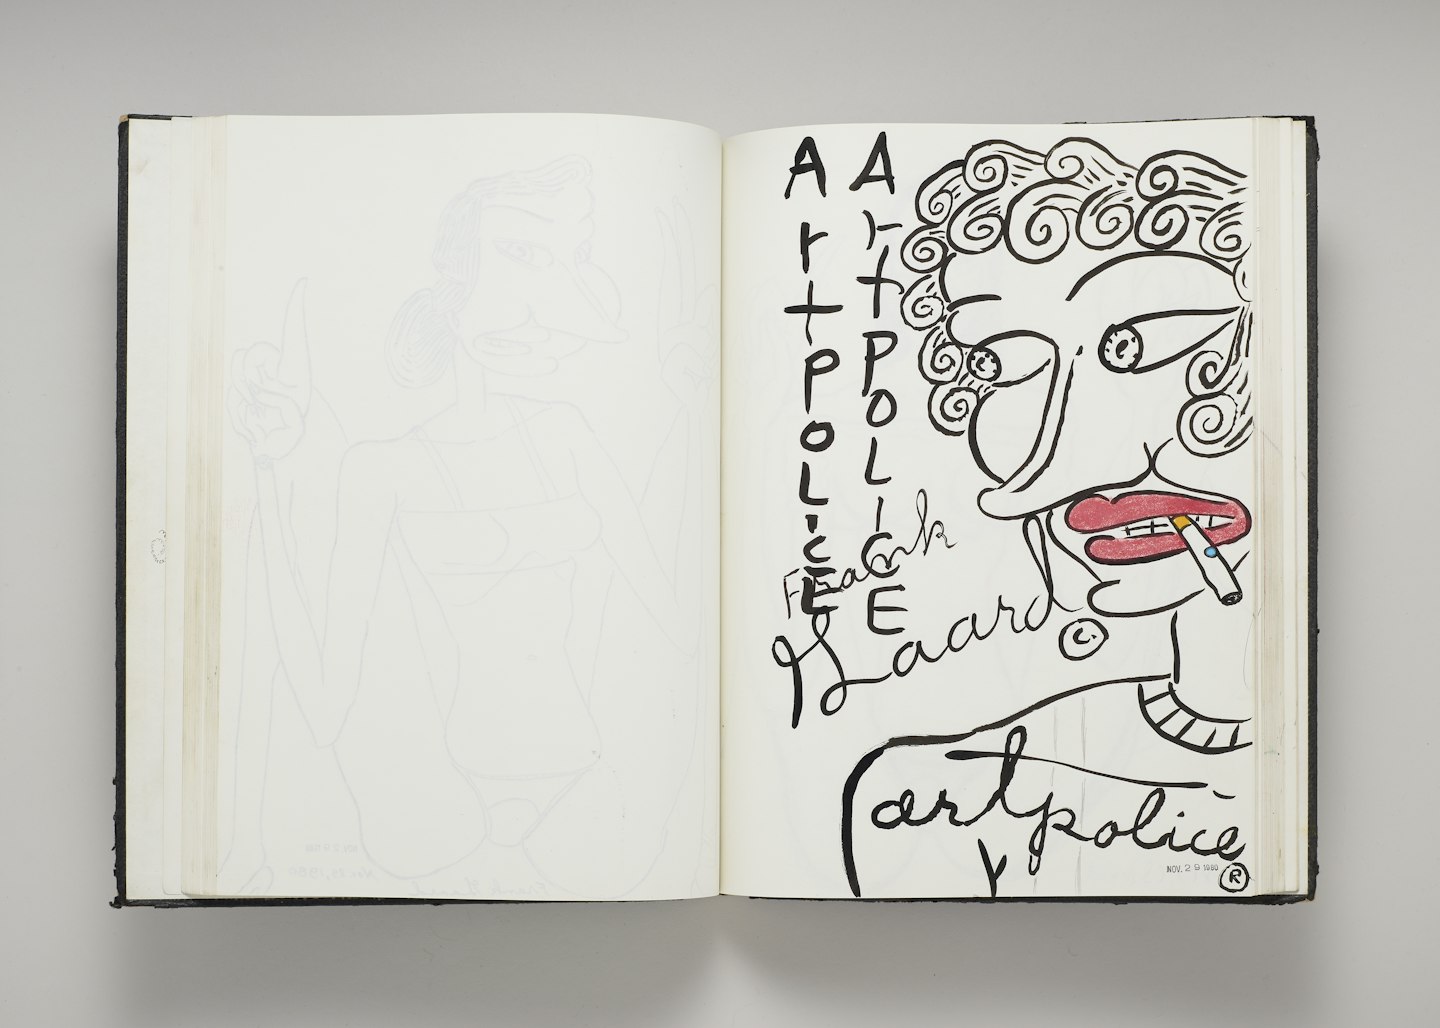 Artpolice
Artpolice
Frank
Gaard
C.
artpolice
NOV. 29 1980
R